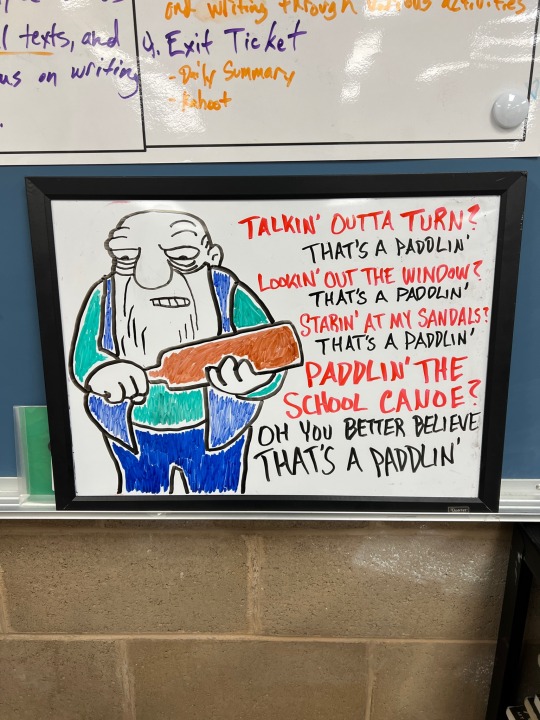 and writing through various activities
l texts, and
us on writing
4. Exit Ticket
- Daily Summary
- Kahoot
TALKIN' OUTTA TURN?
THAT'S A PADDLIN'
LOOKIN' OUT THE WINDOW?
THAT'S A PADDLIN'
STARIN' AT MY SANDALS?
THAT'S A PADDLIN'
PADDLIN' THE
SCHOOL CANOE?
OH YOU BETTER BELIEVE
THAT'S A PADDLIN'
Quartet